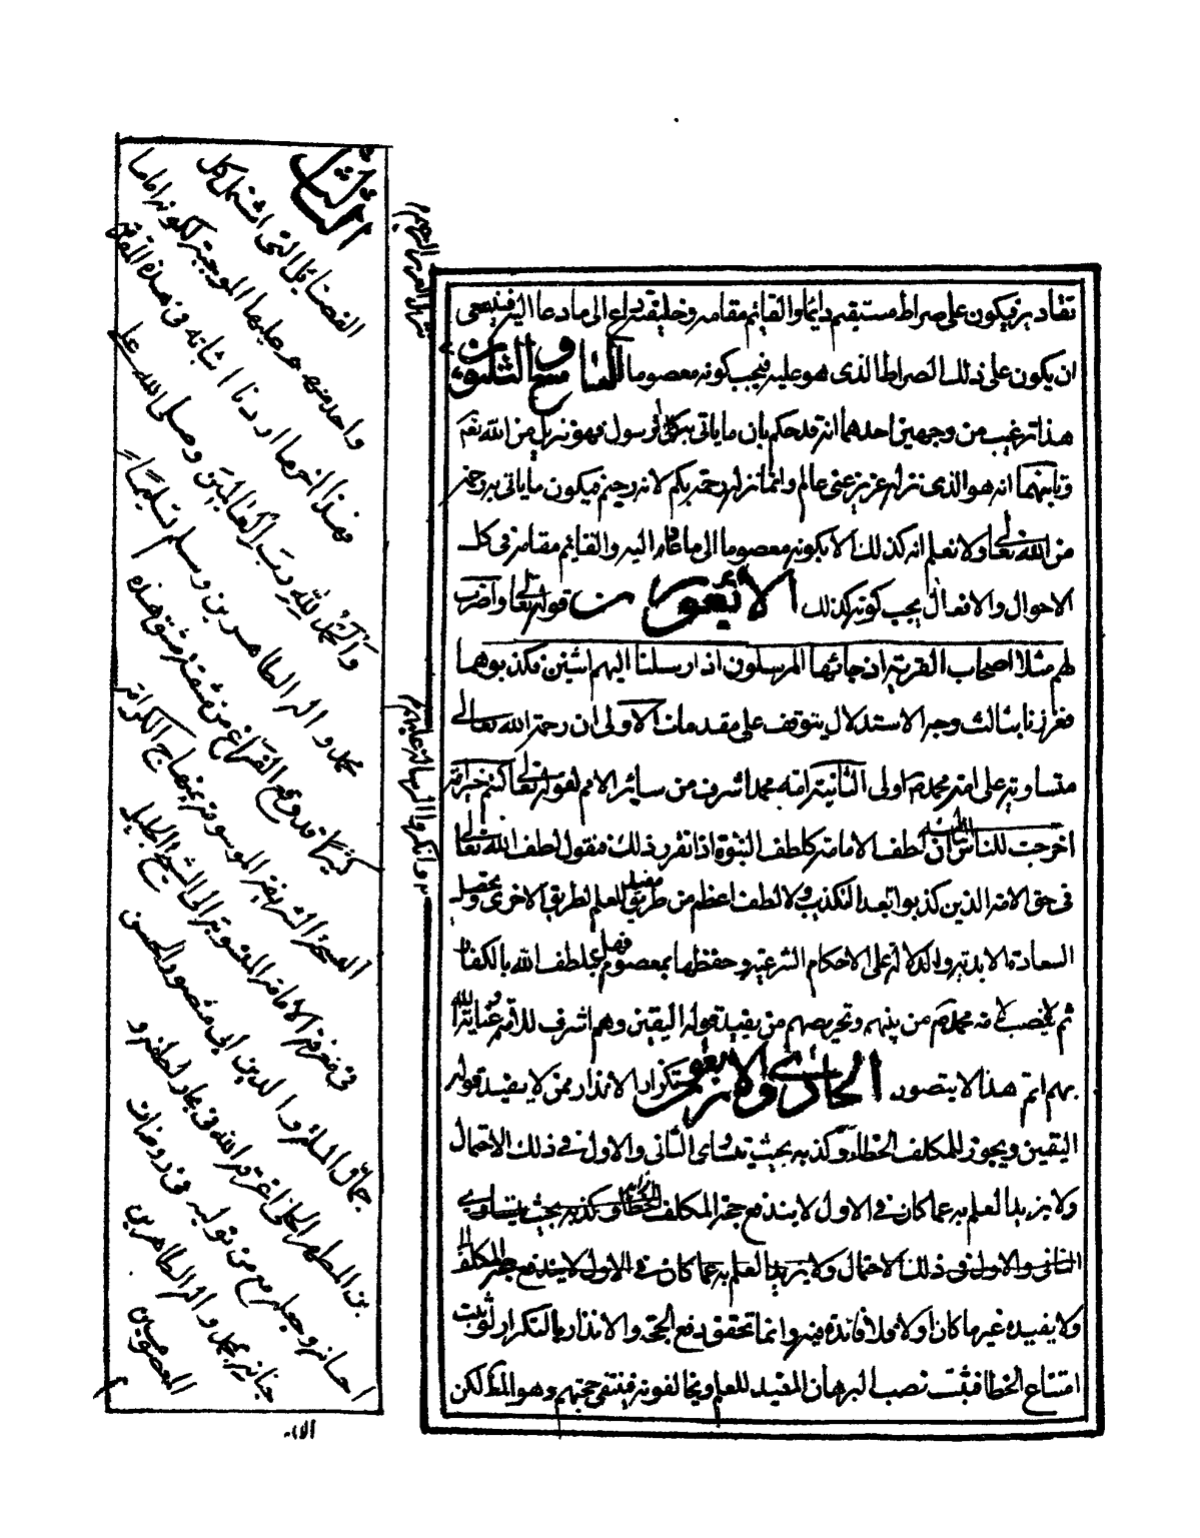 تقاديره فيكون على صراط مستقيم دائما والقائم مقامه وخليفته داع الى ما دعا اليه فينبغي
ان يكون على ذلك الصراط الذى هو عليه فيجب كونه معصوما التاسع والثلثون
هذا ترغيب من وجهين احدهما انه قد حكم بان ما ياتى به الرسول فهو تنزيل من الله نعم
وثانيهما انه هو الذى نزله عزيز غنى عالم وانما نزله رحمة بكم لانه رحيم فيكون ما ياتى به رحمة
من الله تعالى ولا نعلم انه كذلك الا بكونه معصوما الى ما دعا اليه والقايم مقامه فى كل
الاحوال والافعال يجب كونه كذلك الاربعون من قوله تعالى واضرب
لهم مثلا اصحاب القرية اذ جائها المرسلون اذ ارسلنا اليهم اثنين فكذبوهما
فعززنا بثالث وجه الاستدلال يتوقف على مقدمات الاولى ان رحمة الله تعالى
متساوية على امة محمد ص اولى الثانية امة محمد اشرف من سائر الامم لقوله تعالى كنتم خير امة
اخرجت للناس الثالثة ان لطف الامامة كلطف النبوة اذا تقرر ذلك فنقول لطف الله تعالى
فى حق الامة الذين كذبوا بعد التكذيب ولا لطف اعظم من طريق مفيد للعلم لطريق الاخرى وتحصيل
السعادة الابدية والدلالة على الاحكام الشرعية وحفظها بمعصوم فهل لطف الله بالكفار
ثم لا ينصب لامة محمد ص من ينبههم وتحريصهم من يفيد قوله اليقين وهم اشرف للامم وعناية الله
بهم اتم هذا لا يتصور الحادى والاربعون تكرار الانذار ممن لا يفيد قوله
اليقين ويجوز المكلف الخطاء وكذبه بحيث يتساوى الثانى والاول فى ذلك الاحتمال
ولا يزيد العلم به عما كان فى الاول لا يندفع حجة المكلف الخطاء وكذبه بحيث يتساوى
الثانى والاول فى ذلك الاحتمال ولا يزيد العلم به عما كان فى الاول لا يندفع حجة المكلف
ولا يفيده غيرها كان اولا فلا فائدة فيه وانما تحقق دفع الحجة والانذار بالتكرار لو ثبت
امتناع الخطا فيثبت نصب البرهان المفيد للعلم ويخالفونه فينتفى حجتهم وهو المط لكن
الثالث
الفضائل التى اشتمل كل
واحد منهم وعليها الموجبة لكونه اماما
فهذا اخر ما اردنا اثباته فى هذه المقدمة
والحمد لله رب العالمين وصلى الله على
محمد واله الطاهرين وسلم تسليما
كثيرا قد وقع الفراغ من هذه
الشريفة الموسومة بمنهاج الكرامة
فى معرفة الامامة المنسوبة الى الشيخ الجليل
جمال الملة والدين ابى منصور الحسن
بن المطهر الحلى اغرقه الله فى بحار لطفه و
احسانه وجعله مع من توليه فى روضات
جنانه بمحمد واله الطاهرين
المعصومين